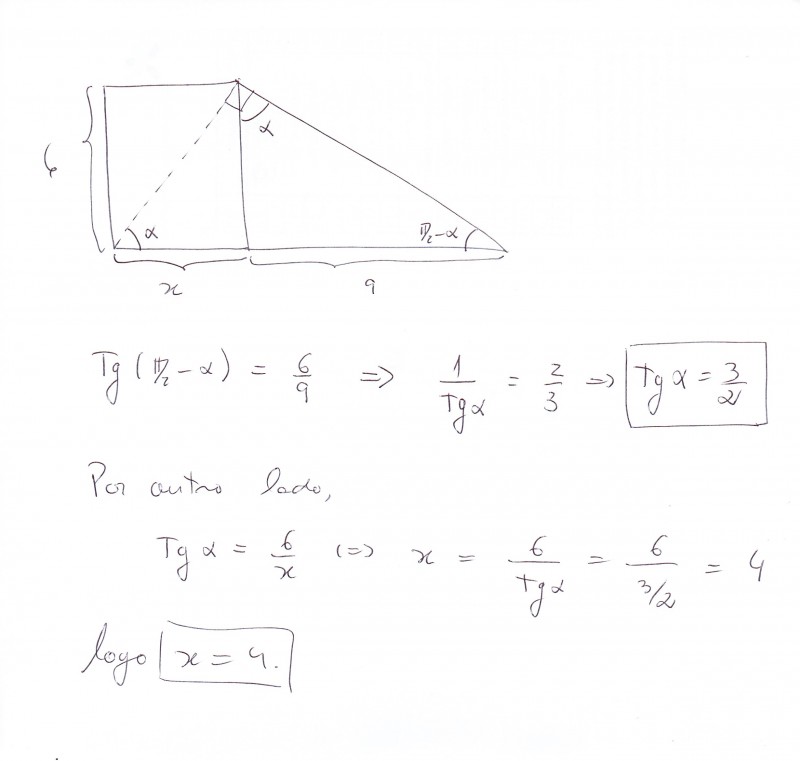 6
α
α
π/2-α
x
9
Tg(π/2-α) = 6/9 => 1/Tgα = 2/3 => Tgα = 3/2
Por outro lado,
Tgα = 6/x (=> x = 6/Tgα = 6/3/2 = 4
logo x = 4.